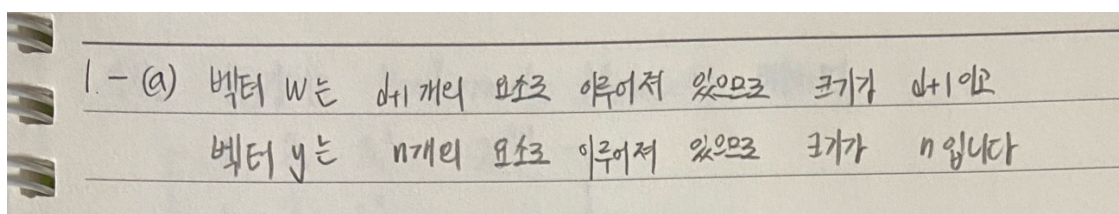 1. - (a) 벡터 w는 d+1개의 요소로 이루어져 있으므로 크기가 d+1이고
벡터 y는 n개의 요소로 이루어져 있으므로 크기가 n입니다